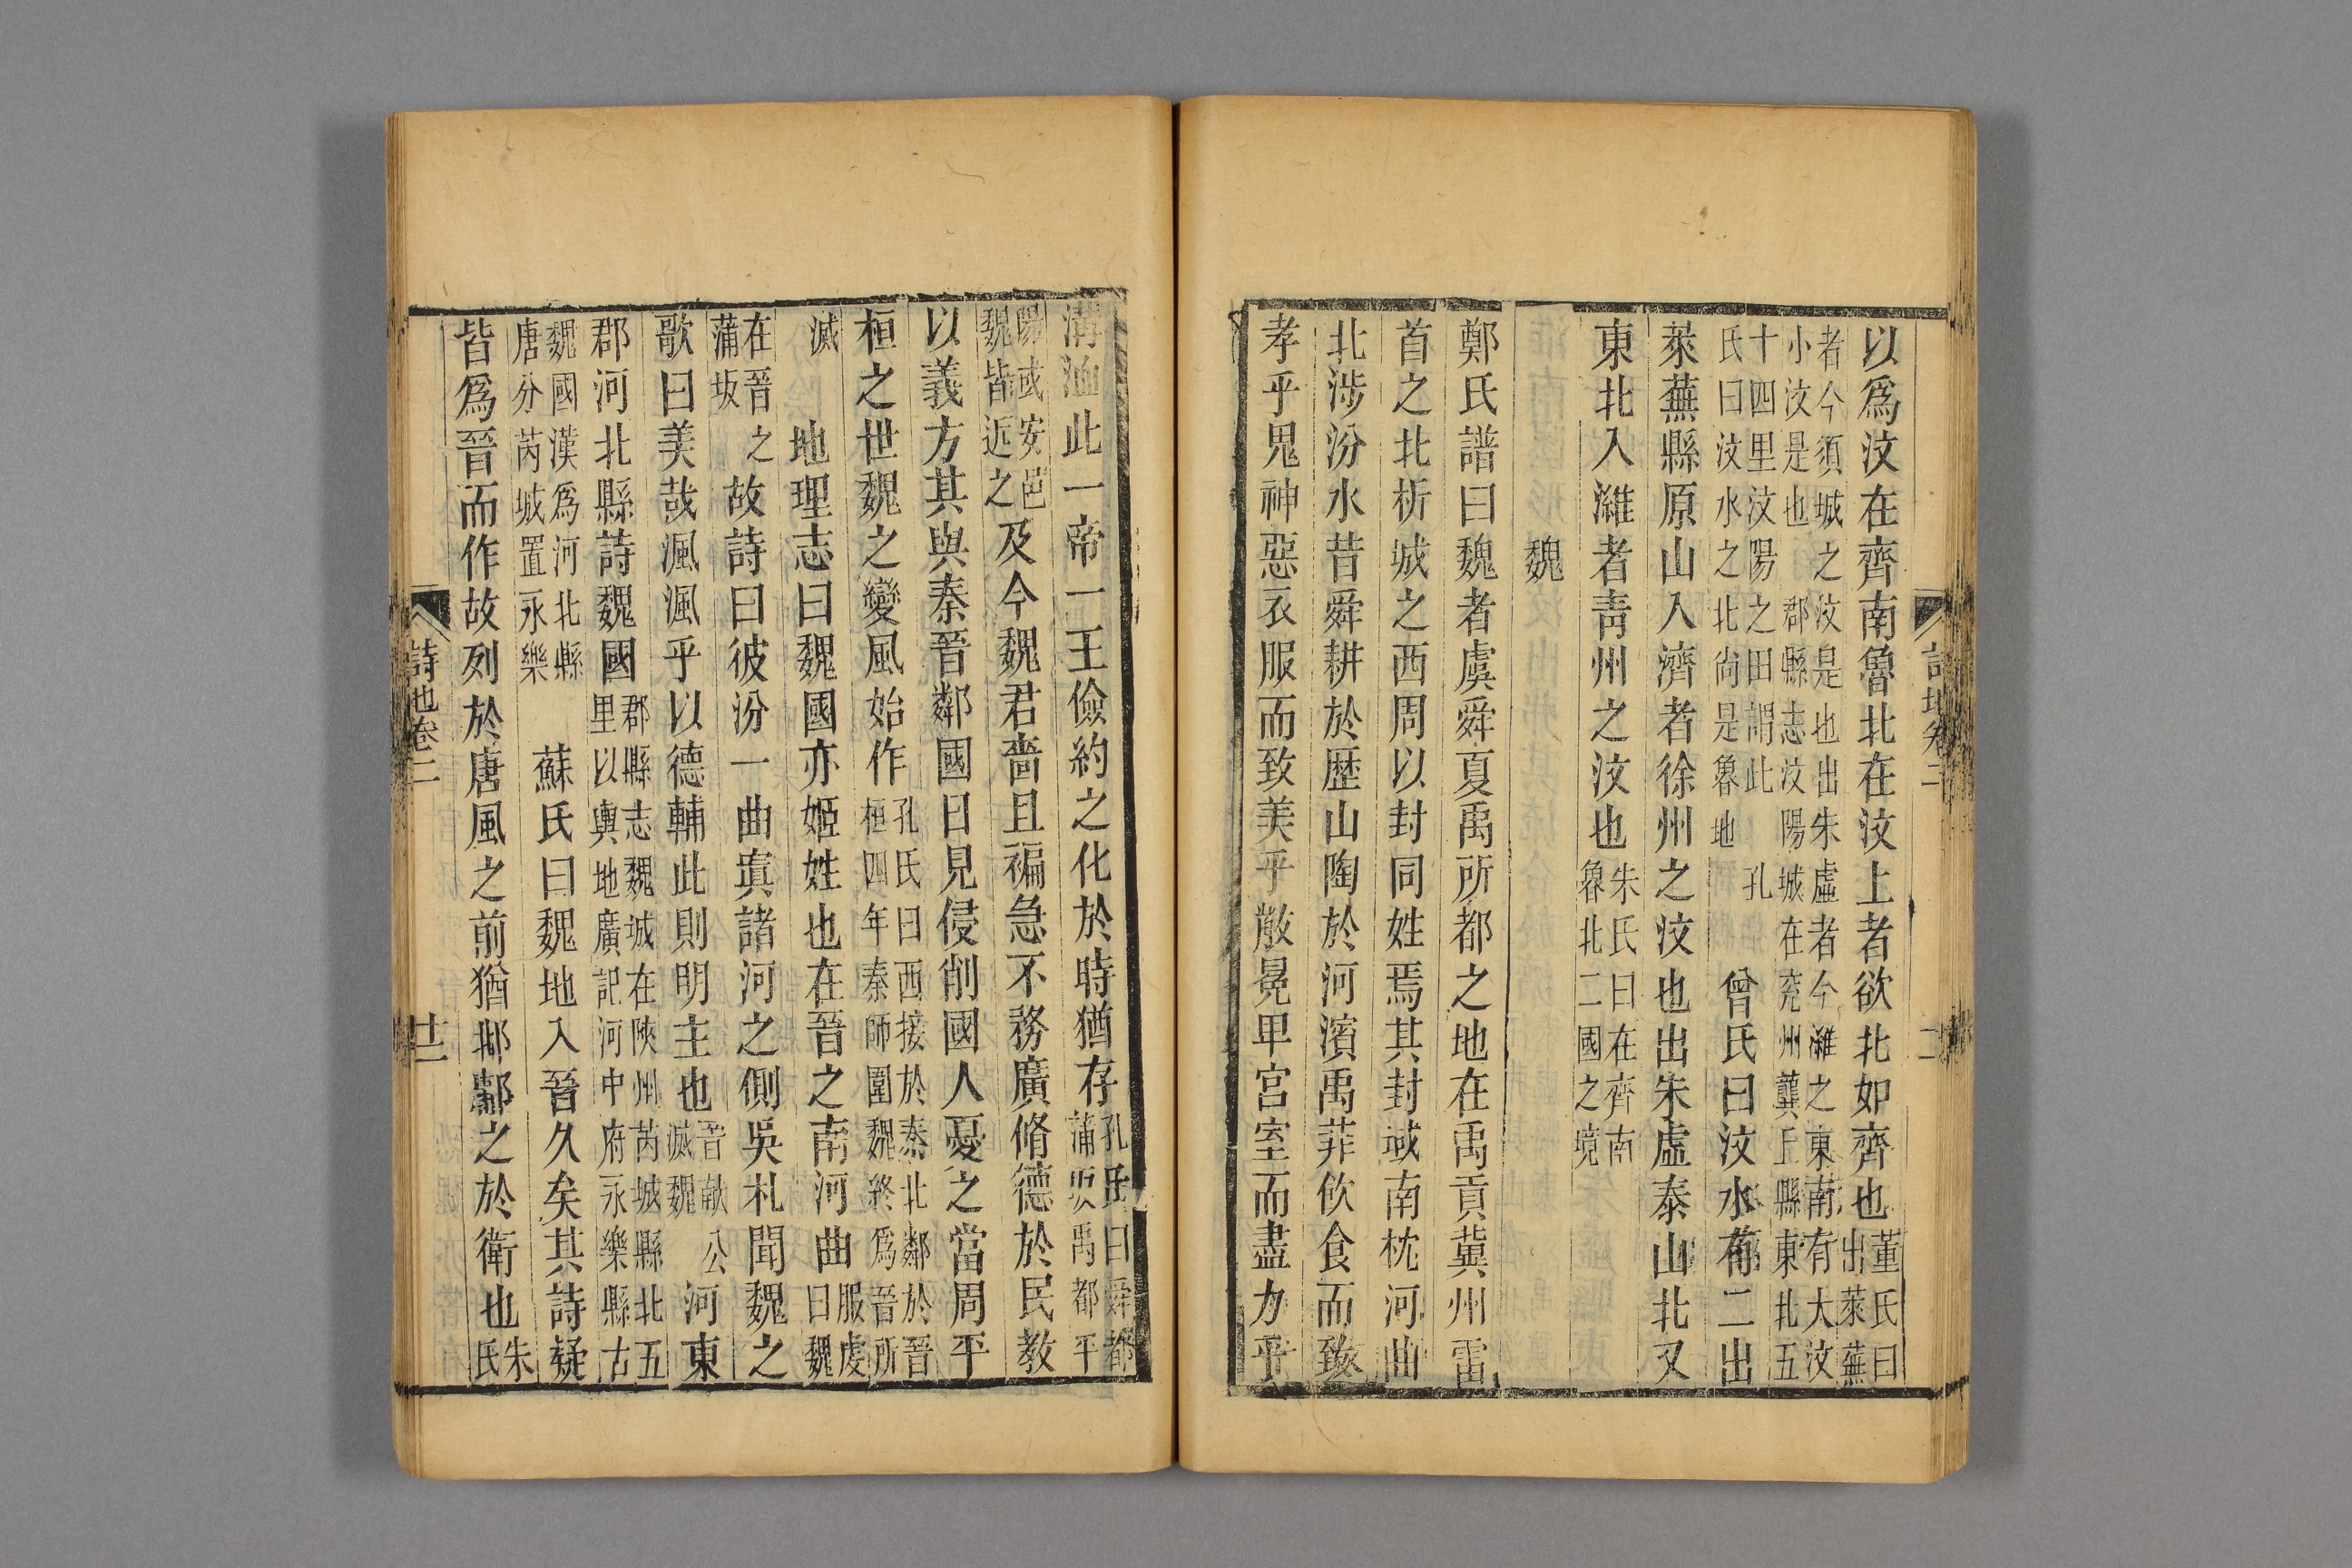 以爲汶在齊南魯北在汶上者欲北如齊也董氏曰出萊蕪
者今須城之汶是也出朱虛者今濰之東南有大汶
小汶是也郡縣志汶陽城在兖州龔丘縣東北五
十四里汶陽之田謂此孔
氏曰汶水之北尚是魯地曾氏曰汶水有二出
萊蕪縣原山入濟者徐州之汶也出朱虛泰山北又
東北入濰者靑州之汶也朱氏曰在齊南魯北二國之境
魏
鄭氏譜曰魏者虞舜夏禹所都之地在禹貢冀州雷
首之北析城之西周以封同姓焉其封域南枕河曲
北涉汾水昔舜耕於歷山陶於河濱禹菲飲食而致
孝乎鬼神惡衣服而致美乎黻冕卑宮室而盡力乎
溝洫此一帝一王儉約之化於時猶存孔氏曰舜都蒲坂禹都平
陽或安邑魏皆近之及今魏君嗇且褊急不務廣脩德於民教
以義方其與秦晉鄰國日見侵削國人憂之當周平
桓之世魏之變風始作孔氏曰西接於秦北鄰於晉桓四年秦師圍魏終爲晉所
滅地理志曰魏國亦姬姓也在晉之南河曲服虔曰魏
在晉之蒲坂故詩曰彼汾一曲寘諸河之側吳札聞魏之
歌曰美哉渢渢乎以德輔此則明主也晉獻公滅魏河東
郡河北縣詩魏國郡縣志魏城在陝州芮城縣北五里以輿地廣記河中府永樂縣古
魏國漢爲河北縣唐分芮城置永樂蘇氏曰魏地入晉久矣其詩疑
皆爲晉而作故列於唐風之前猶邶鄘之於衛也朱氏
詩地卷二
廿二